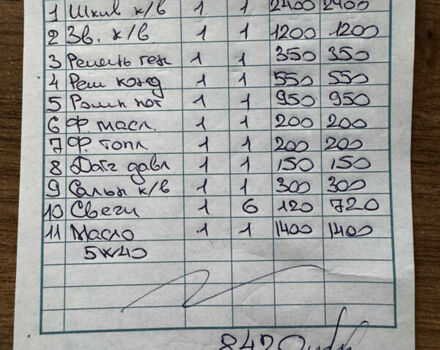 1 Шкив к/в 1 1 2400 2400
2 Зв. к/в 1 1 1200 1200
3 Ремень ген 1 1 350 350
4 Рем конд 1 1 550 550
5 Ролик нат 1 1 950 950
6 Ф. масл. 1 1 200 200
7 Ф. топл 1 1 200 200
8 Датч давл 1 1 150 150
9 Сальн к/в 1 1 300 300
10 Свечи 1 6 120 720
11 Масло 1 1 1400 1400
5W40
8420